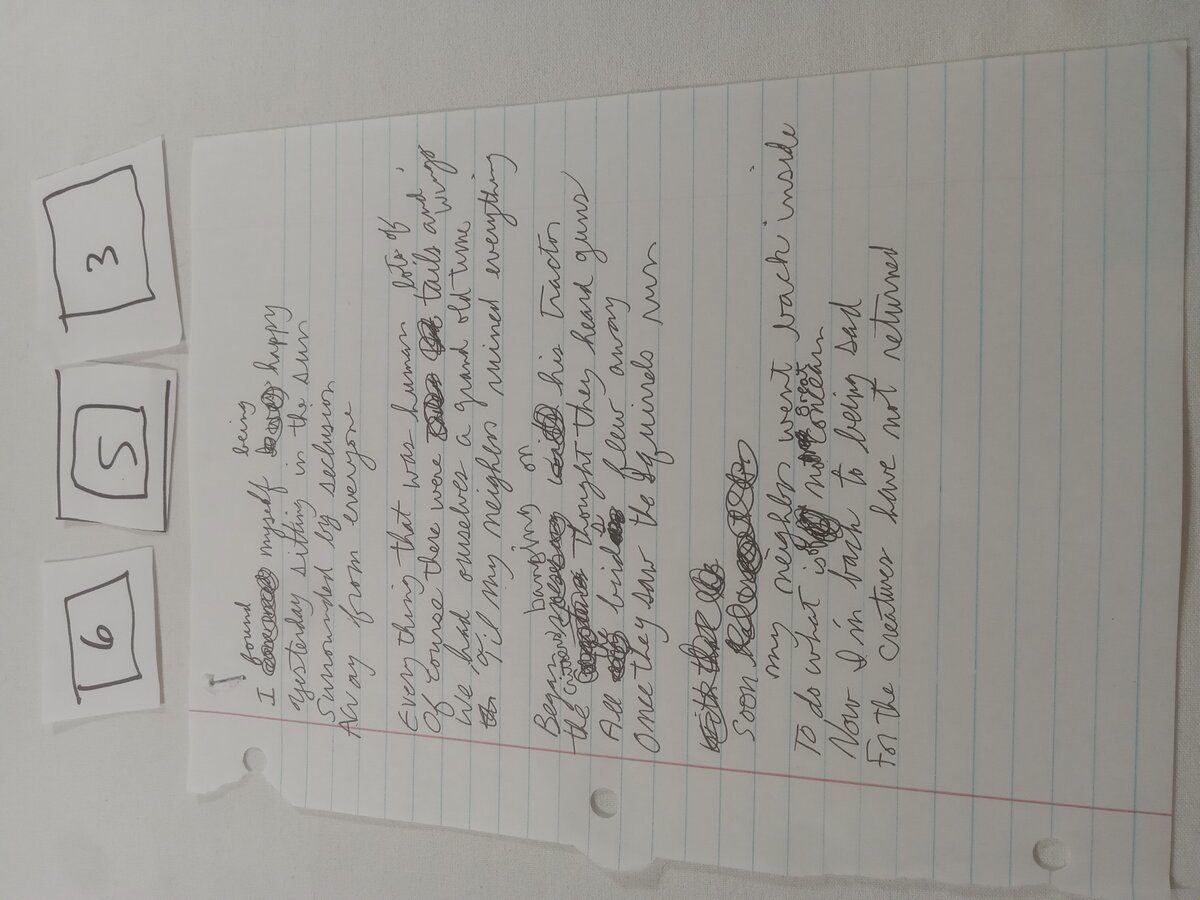 6 5 3
I found myself being happy
Yesterday sitting in the sun
Surrounded by selusion
Away from everyone
Every thing that was human
Of course there were lots of tails and wings
We had ourselves a grand old time
'Til my neighbr ruined everything
Began banging on his tractor
the critters thought they heard guns
All birds flew away
Once they saw the squirrels run
Soon
my neighbr went back inside
To do what is great concearn
Now I'm back to being sad
For the creatures have not returned